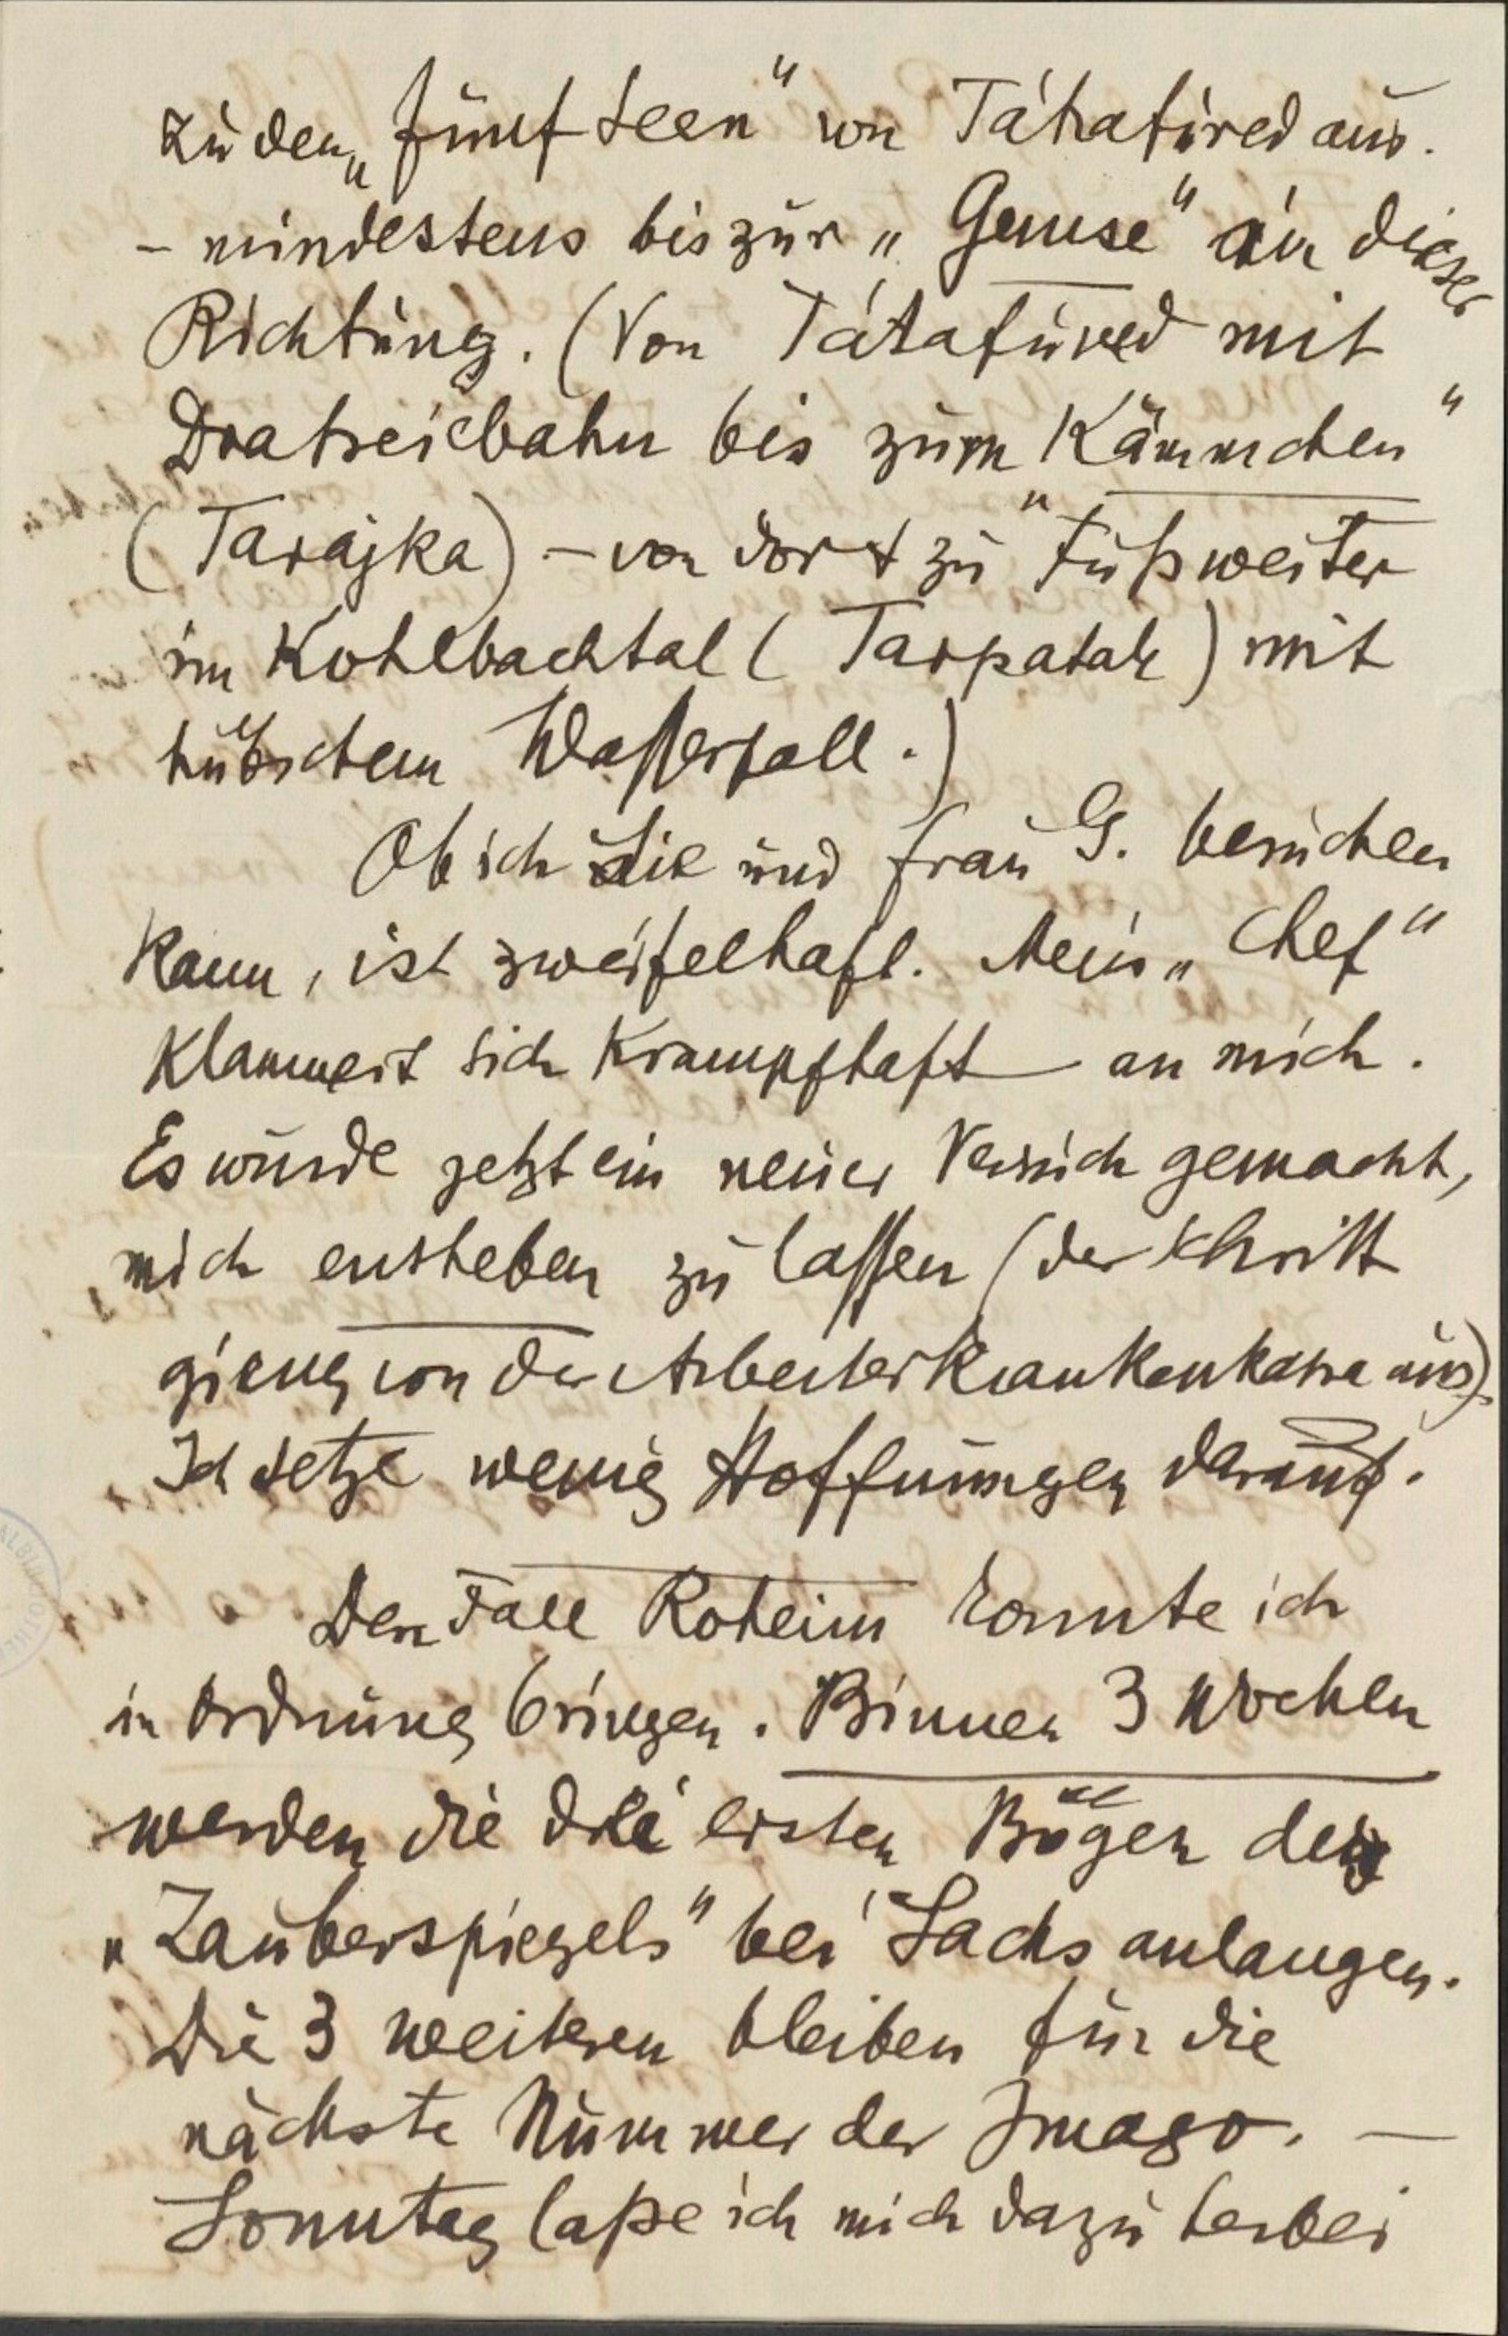 zu den „fünf Seen" von Tátrafüred aus.
– mindestens bis zur „Gemse" in dieser
Richtung. (Von Tátrafüred mit
Dratseilbahn bis zum „Kämmchen"
(Tarajka) – von dort zu Fuß weiter
im Kohlbachtal (Tarpatak) mit
hübschem Wasserfall.)
Ob ich Sie und Frau G. besuchen
kann, ist zweifelhaft. Mein „Chef"
klammert sich krampfhaft an mich.
Es wurde jetzt ein neuer Versuch gemacht,
mich entheben zu lassen (der Schritt
gieng von der Arbeiterkrankenkassa aus).
Ich setze wenig Hoffnungen darauf.
Den Fall Roheim konnte ich
in Ordnung bringen. Binnen 3 Wochen
werden die drei ersten Bögen des
„Zauberspiegels" bei Sachs anlangen.
Die 3 weiteren bleiben für die
nächste Nummer der Imago. –
Sonntag laße ich mich dazu herbei